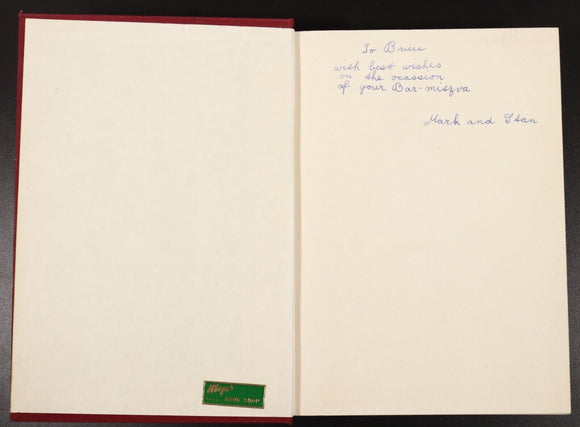 To Bruce
with best wishes
on the ocassion
of your Bar-mitzva
Mark and Stan
BOOK SHOP